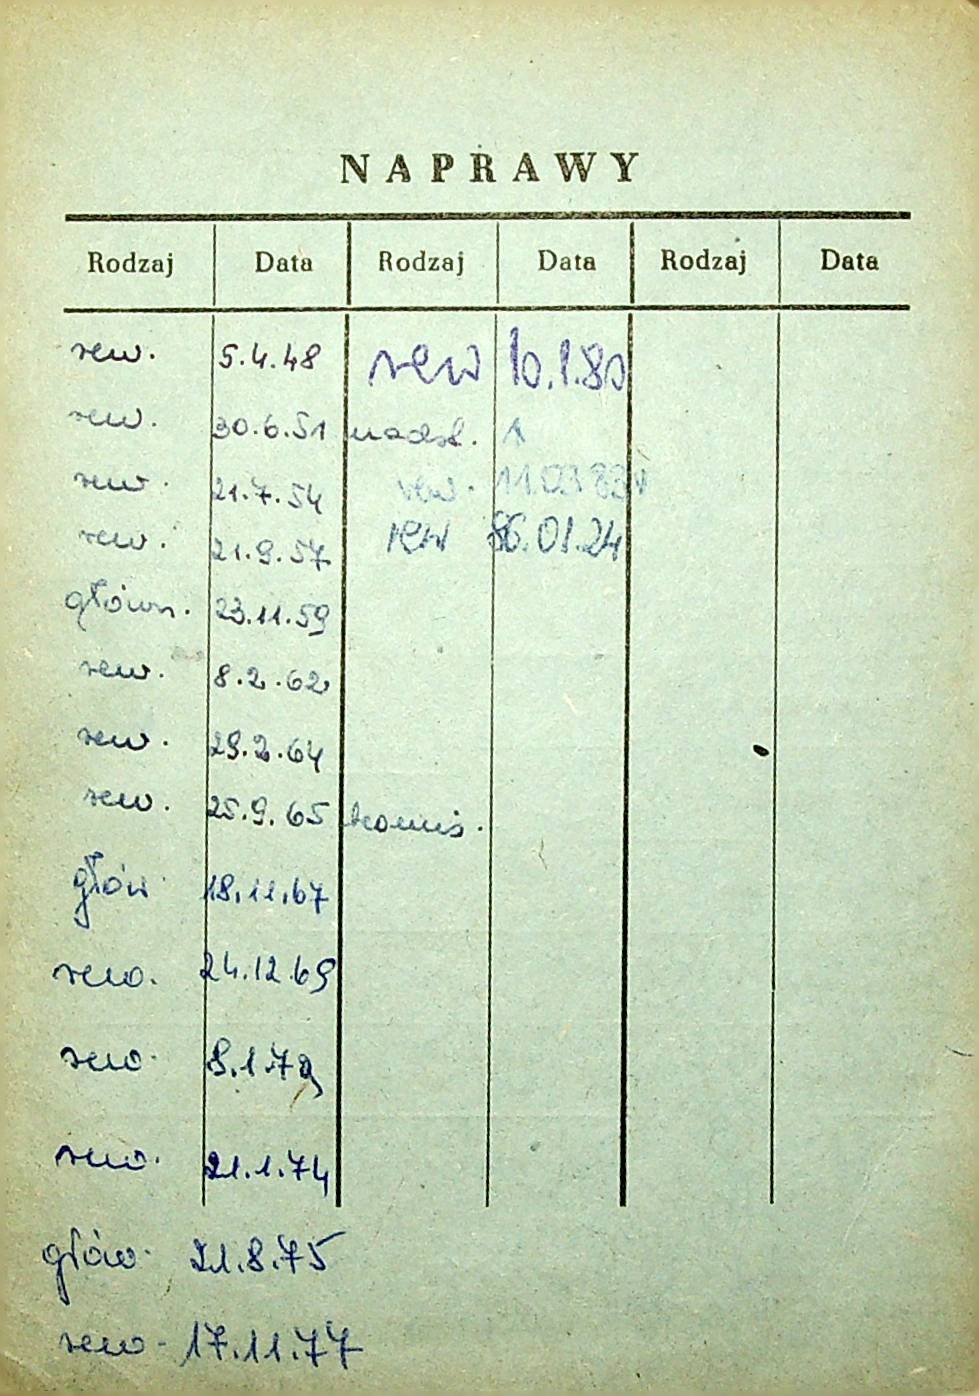 NAPRAWY
Rodzaj Data Rodzaj Data Rodzaj Data
rew. 5.4.48 rew 10.1.80
rew. 30.6.51 nadst.
rew. 21.7.54 rew. 11.03 83
rew. 21.9.57 rew 86.01.24
główn. 23.11.59
rew. 8.2.62
rew. 29.2.64
rew. 25.9.65 komis.
głów 18.11.67
rew. 24.12.69
rew. 8.1.72
rew. 21.1.74
głów. 21.8.75
rew - 17.11.77